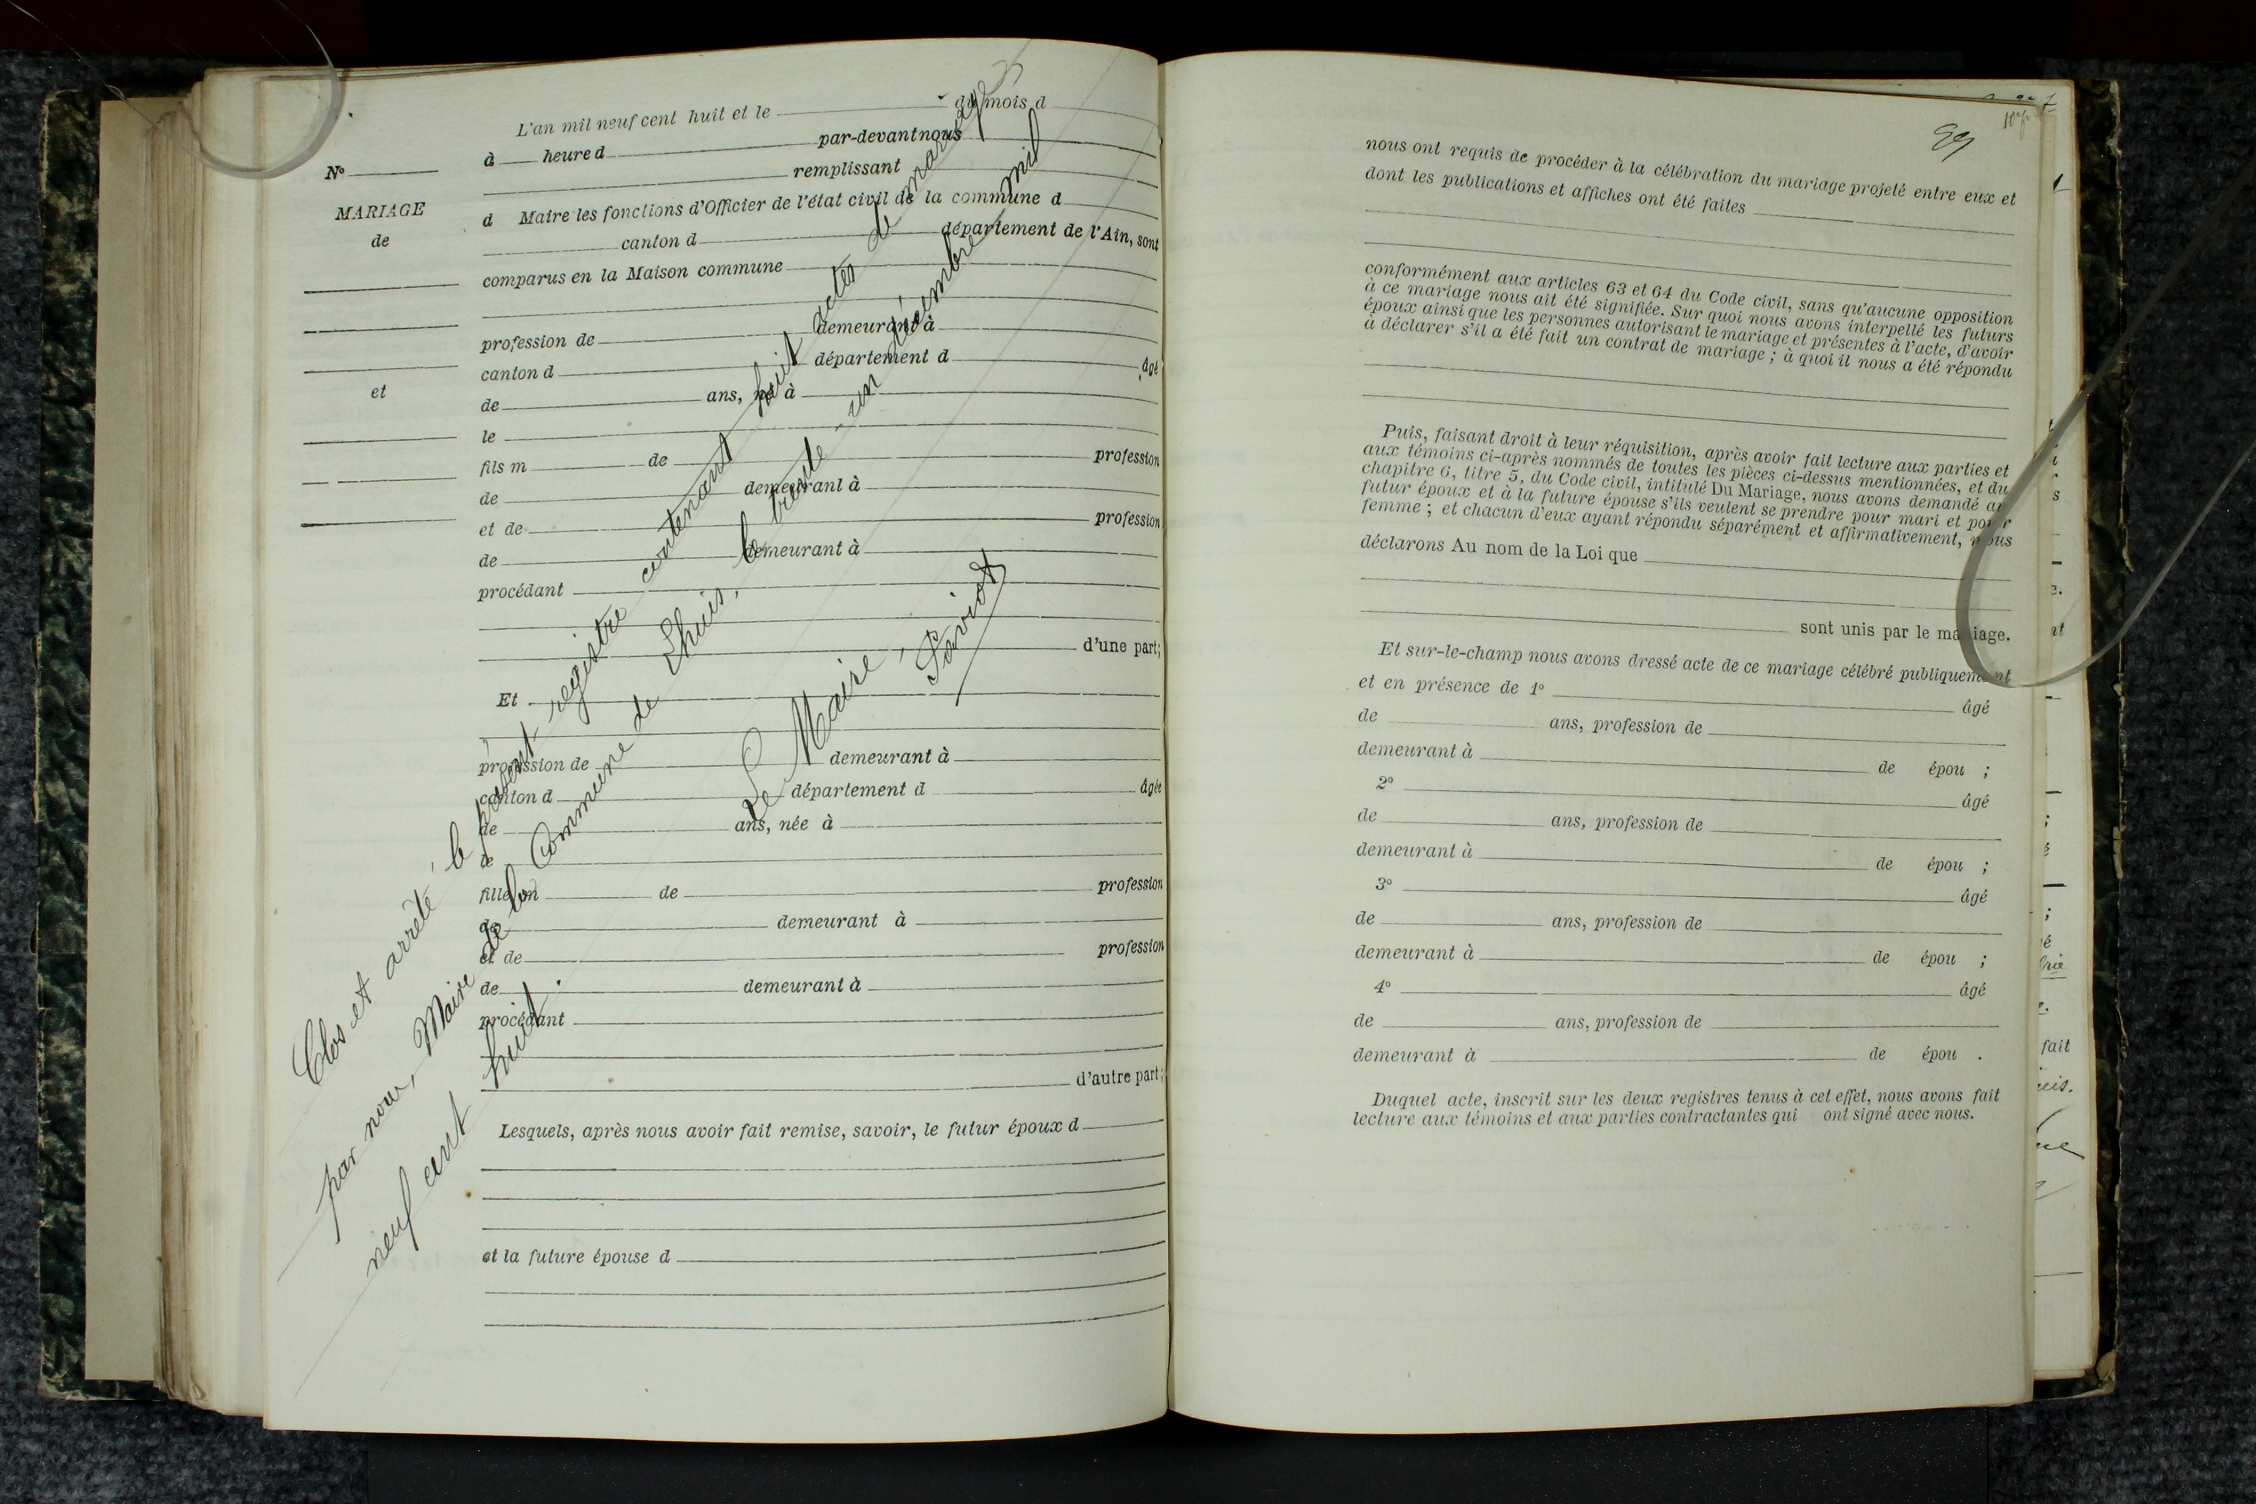 N°
MARIAGE
de
et
L'an mil neuf cent huit et le du mois d
à heure d par-devant nous
remplissant
d Maire les fonctions d'Officier de l'état civil de la commune d
canton d département de l'Ain, sont
comparus en la Maison commune
profession de demeurant à
canton d département d âgé
de ans, né à
le
fils m de profession
de demeurant à
et de profession
de demeurant à
procédant
d'une part;
Et
profession de demeurant à
canton d département d âgée
de ans, née à
le
fille m de profession
de demeurant à
et de profession
de demeurant à
procédant
d'autre part;
Lesquels, après nous avoir fait remise, savoir, le futur époux d
et la future épouse d
Clos et arrêté le présent registre contenant huit actes de mariages
par nous, Maire de la Commune de Lhuis, le trente-un décembre mil
neuf cent huit.
Le Maire,
Paviot
99
nous ont requis de procéder à la célébration du mariage projeté entre eux et
dont les publications et affiches ont été faites
conformément aux articles 63 et 64 du Code civil, sans qu'aucune opposition
à ce mariage nous ait été signifiée. Sur quoi nous avons interpellé les futurs
époux ainsi que les personnes autorisant le mariage et présentes à l'acte, d'avoir
à déclarer s'il a été fait un contrat de mariage ; à quoi il nous a été répondu
Puis, faisant droit à leur réquisition, après avoir fait lecture aux parties et
aux témoins ci-après nommés de toutes les pièces ci-dessus mentionnées, et du
chapitre 6, titre 5, du Code civil, intitulé Du Mariage, nous avons demandé au
futur époux et à la future épouse s'ils veulent se prendre pour mari et pour
femme ; et chacun d'eux ayant répondu séparément et affirmativement, nous
déclarons Au nom de la Loi que
sont unis par le mariage.
Et sur-le-champ nous avons dressé acte de ce mariage célébré publiquement
et en présence de 1° âgé
de ans, profession de
demeurant à de épou ;
2° âgé
de ans, profession de
demeurant à de épou ;
3° âgé
de ans, profession de
demeurant à de épou ;
4° âgé
de ans, profession de
demeurant à de épou .
Duquel acte, inscrit sur les deux registres tenus à cet effet, nous avons fait
lecture aux témoins et aux parties contractantes qui ont signé avec nous.
fait